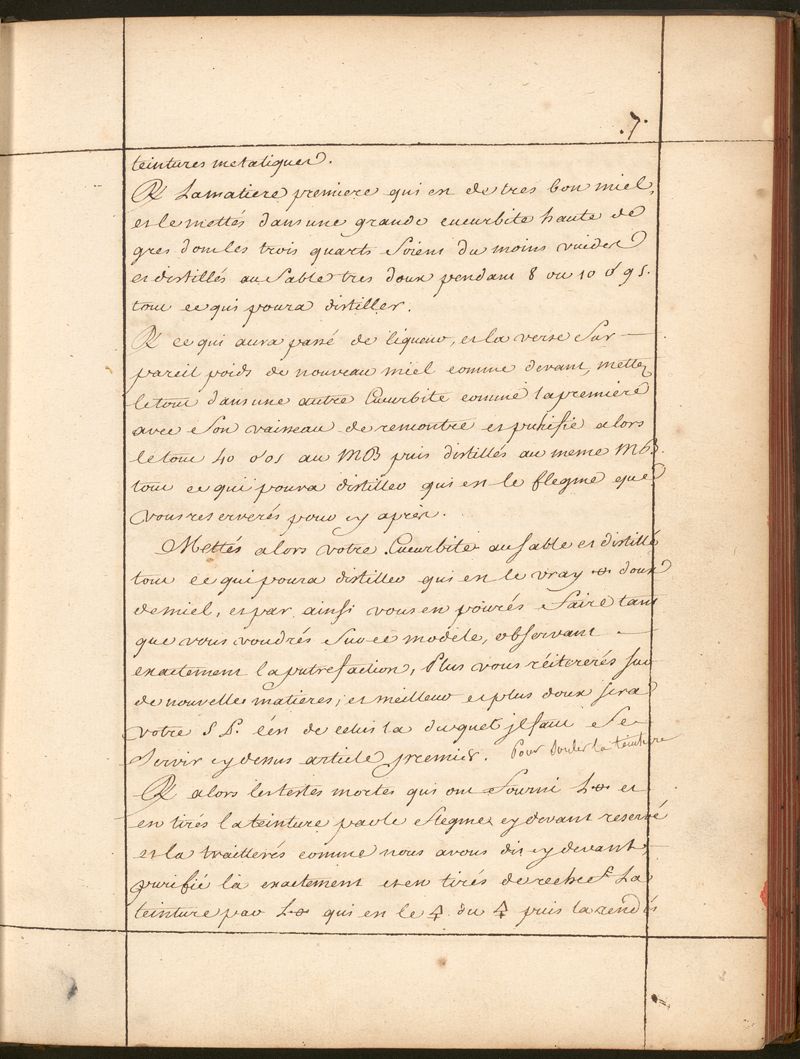 .7.
teintures metaliques.
℞ La matiere premiere qui est de tres bon miel,
et le mettés dans une grande cucurbite haute de
gres dont les trois quarts soient du moins vuides
et distillés au sable tres doux pendant 8 ou 10
tout ce qui poura distiller.
℞ ce qui aura passé de liqueur, et la verse sur
pareil poids de nouveau miel comme devant, mettez
le tout dans une autre Cucurbite comme la premiere
avec son vaisseau de remontre et putrifié alors
le tout 40 au MB puis distillés au meme MB.
tout ce qui poura distiller qui est le flegme que
vous reserverés pour cy après.
Mettés alors votre Cucurbite au sable et distillé
tout ce qui poura distiller qui est le vray doux
de miel, et par ainsi vous en pourés faire tant
que vous voudrés sur ce modele, observant
exactement la putrefaction, Plus vous réitererés sur
de nouvelles matieres, et meilleur et plus doux sera
votre S P. c'est de celui la duquel jl faut se
servir cy dessus article premier. Pour la teinture
℞ alors les testes mortes qui ont fourni L et
en tirés la teinture par le flegme cy devant reservé
et la traitterés comme nous avons dit cy devant,
purifié la exactement et en tirés derechef La
teinture par L qui est le 🜍 du 🜍 puis la rendés